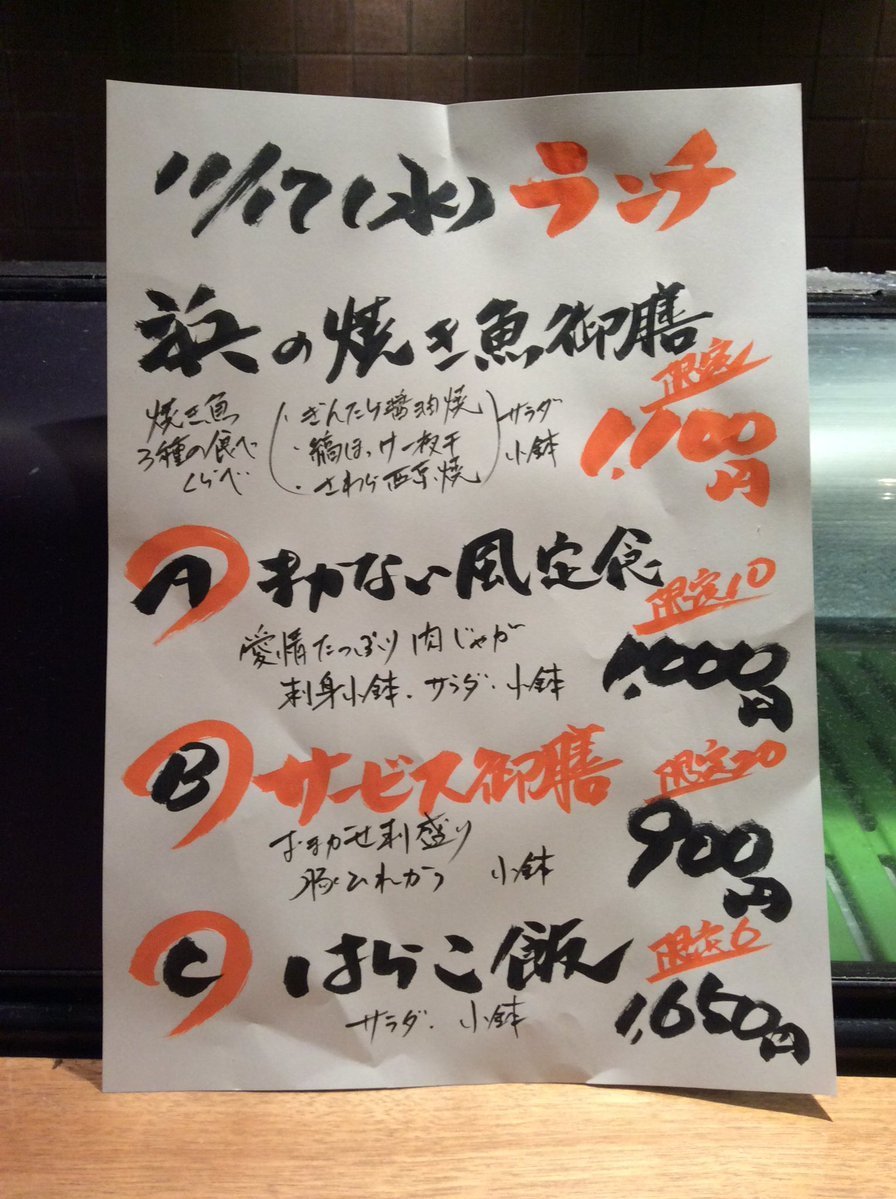 11/17(水)ランチ
浜の焼き魚御膳
限定
焼き魚
3種の食べ
くらべ
・ぎんだら醤油焼
・縞ほっけ一枚干
・さわら西京焼
サラダ
小鉢
1,100円
A まかない風定食
限定10
愛情たっぷり肉じゃが
刺身小鉢.サラダ.小鉢
1,000円
B サービス御膳
限定20
おまかせ刺盛り
豚ひれかつ 小鉢
900円
C はらこ飯
限定6
サラダ. 小鉢
1,650円